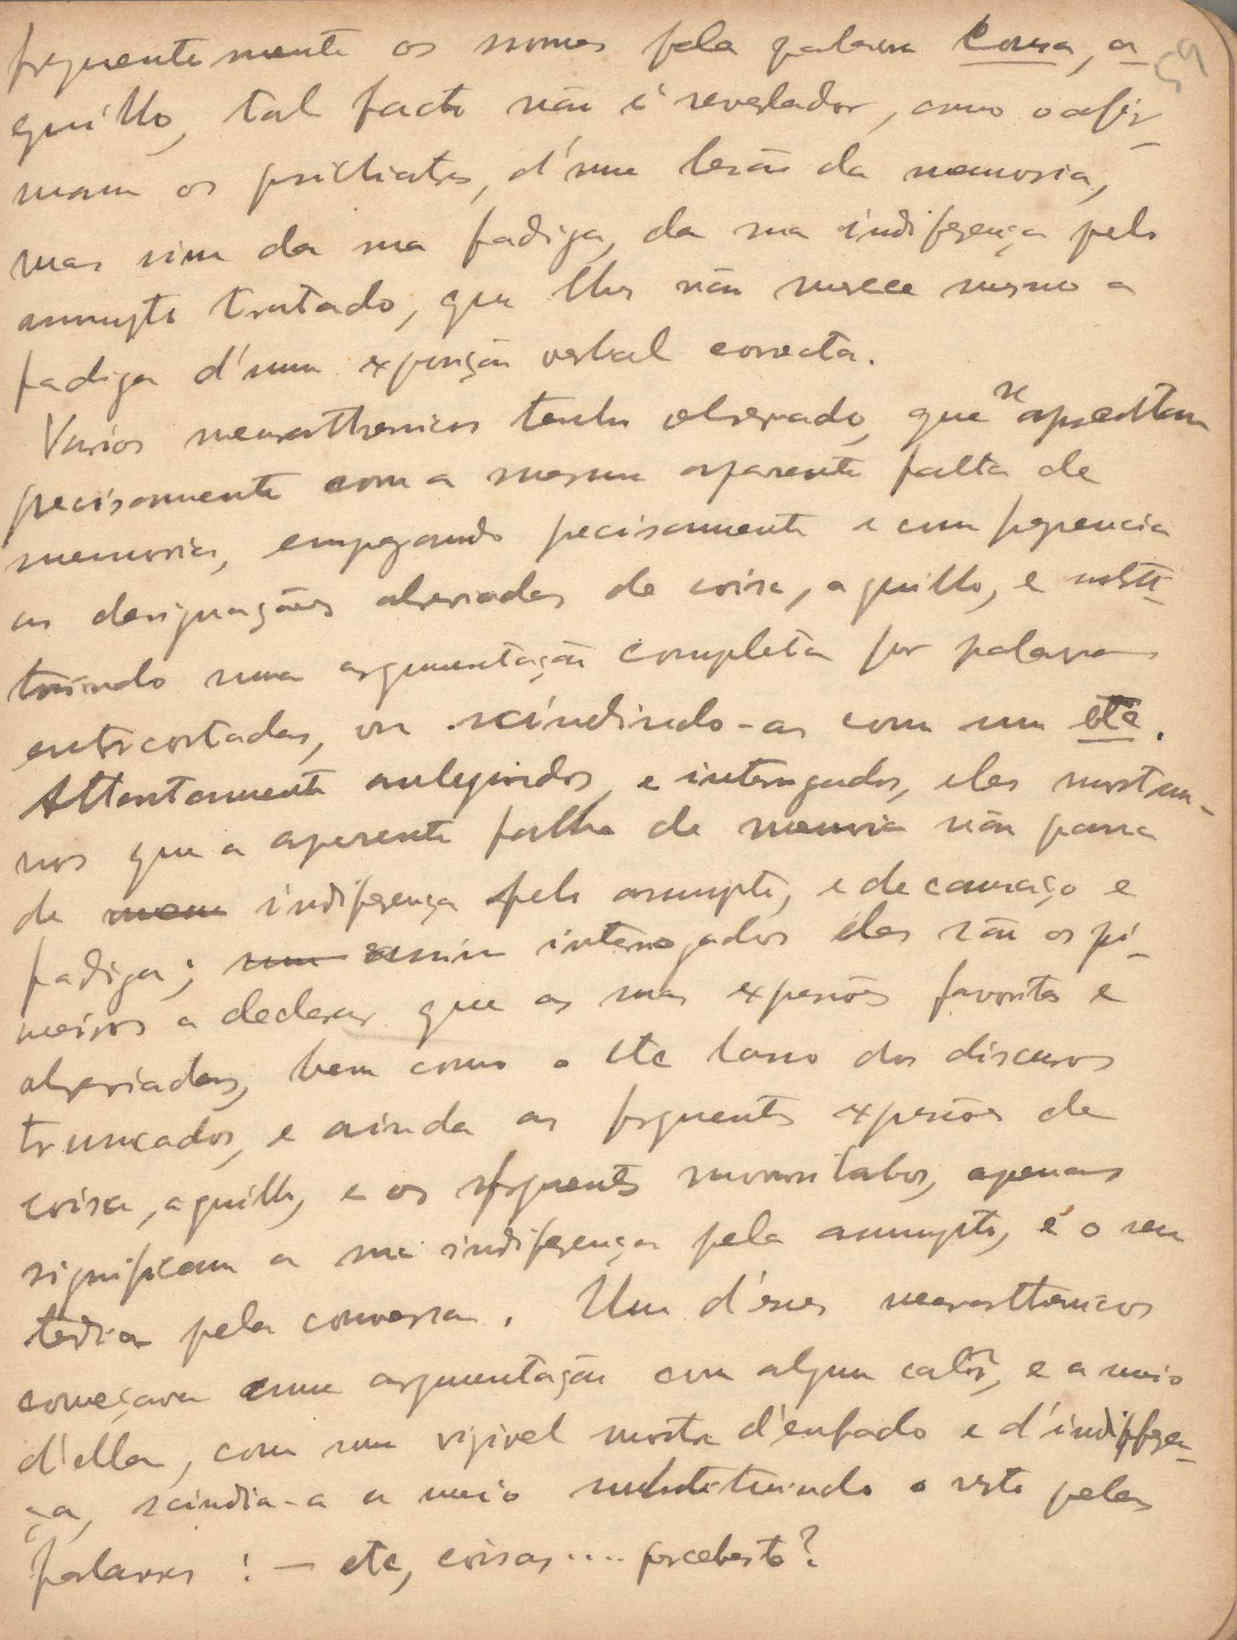 frequentemente os nomes pela palavra cousa, a
quillo, tal facto não é revelador, como o afir
mam os psichiatras, d'uma lesão da memoria,
mas sim da sua fadiga, da sua indiferença pelo
assumpto tratado, que lhes não merece mesmo a
fadiga d'uma exposição verbal correcta.
Varios neurasthenicos tenho observado, que se apresentam
precisamente com a mesma aparente falta de
memoria, empregando precisamente e com frequencia
as designações abreviadas de coisa, aquillo, e substi-
tuindo uma argumentação completa por palavras
entrecortadas, ou scindindo-as com um etc.
Attentamente inqueridos e interrogados, eles mostram-
nos que a aparente falha de memoria não passa
de mem indiferença pelo assumpto, e de cansaço e
fadiga; assim interrogados eles são os pri-
meiros a declarar que as suas expressões favoritas e
abreviadas, bem como o etc dos discursos
truncados, e ainda as frequentes expressões de
coisa, aquillo, e os frequentes monossilabos, apenas
significam a sua indiferença pelo assumpto, é o seu
tedio pela conversa. Um d'esses neurasthenicos
começava uma argumentação com algum calor, e a meio
d'ella, com uma visivel mostra d'enfado e d'indifferen-
ça, scindia-a a meio substituindo o resto pelas
palavras: — etc, coisas.... percebeste?